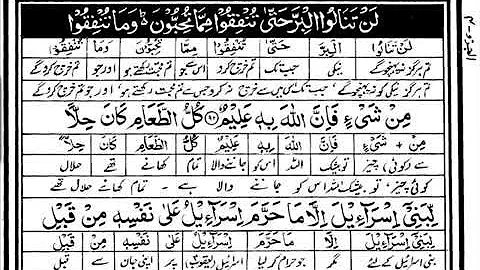 لَنْ تَنَالُوا الْبِرَّ حَتّٰى تُنْفِقُوْا مِمَّا تُحِبُّوْنَ وَمَا تُنْفِقُوْا
لَنْ تَنَالُوا الْبِرَّ حَتّٰى تُنْفِقُوْا مِمَّا تُحِبُّوْنَ وَمَا تُنْفِقُوْا
تم ہرگز نہ پہنچو گے نیکی جب تک تم خرچ کرو اس سے جو تم محبت رکھتے ہو اور جو تم خرچ کرو گے
تم ہرگز نیکی کو نہ پہنچو گے جب تک اس میں سے خرچ نہ کرو جس سے تم محبت رکھتے ہو اور جو تم خرچ کرو گے
مِنْ شَیْءٍ فَاِنَّ اللّٰهَ بِهٖ عَلِيْمٌ ﴿۹۲﴾ كُلُّ الطَّعَامِ كَانَ حِلًّا
مِنْ + شَیْءٍ فَاِنَّ اللّٰهَ بِهٖ عَلِيْمٌ كُلُّ الطَّعَامِ كَانَ حِلًّا
سے (کوئی) چیز تو بیشک اللہ اس کو جاننے والا تمام کھانے تھے حلال
کوئی چیز، تو بیشک اللہ اس کو جاننے والا ہے - تمام کھانے حلال تھے
لِّبَنِیْ اِسْرَآءِيْلَ اِلَّا مَا حَرَّمَ اِسْرَآءِيْلُ عَلٰى نَفْسِهٖ مِنْ قَبْلِ
لِّبَنِیْ اِسْرَآءِيْلَ اِلَّا مَا حَرَّمَ اِسْرَآءِيْلُ عَلٰى نَفْسِهٖ مِنْ قَبْلِ
بنی اسرائیل کے لئے مگر جو حرام کر لیا اسرائیل (یعقوب) پر اپنی جان سے قبل